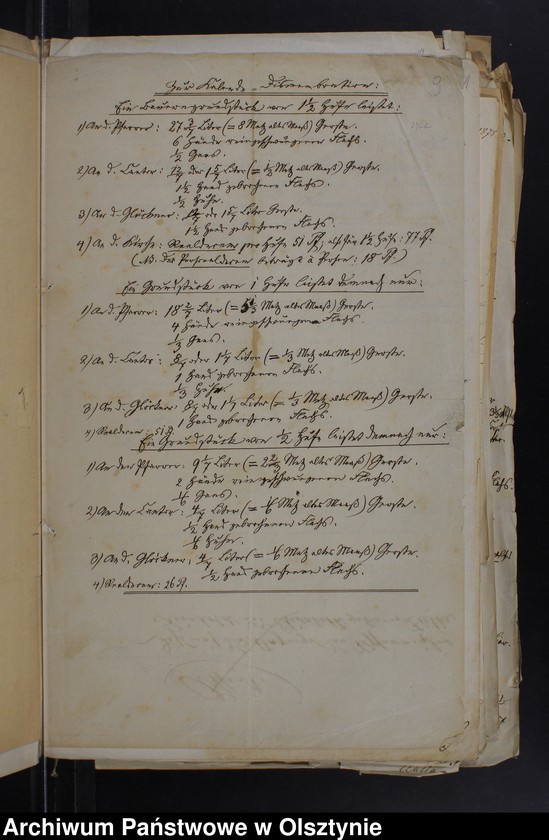 9
Zur Kalende-Dismembration:
Ein Bauerngrundstück von 1½ Hufen leistet:
1) An d. Pfarrer: 27 3/7 Liter (= 8 Metz altes Maaß) Gerste.
6 Hände reingeschwungenen Flachs.
½ Gans.
2) An d. Cantor: 12/7 oder 1 5/7 Liter (= ½ Metz altes Maaß) Gerste.
1½ Hand gebrochenen Flachs.
½ Huhn.
3) An d. Glöckner: 12/7 oder 1 5/7 Liter Gerste.
1½ Hand gebrochenen Flachs.
4) An d. Kirche: Realdecem pro Hufe 51 Pf., also für 1½ Hufe: 77 Pf.
(NB. Das Personaldecem beträgt à Person: 18 Pf.)
Ein Grundstück von 1 Hufe leistet demnach nur:
1) An d. Pfarrer: 18 2/7 Liter (= 5⅓ Metz altes Maaß) Gerste.
4 Hände reingeschwungenen Flachs.
⅓ Gans.
2) An d. Cantor: 8/7 oder 1 1/7 Liter (= ⅓ Metz altes Maaß) Gerste.
1 Hand gebrochenen Flachs.
⅓ Huhn.
3) An d. Glöckner: 8/7 oder 1 1/7 Liter (= ⅓ Metz altes Maaß) Gerste.
1 Hand gebrochenen Flachs.
4) Realdecem: 51 Pf.
Ein Grundstück von ½ Hufe leistet demnach nur:
1) An den Pfarrer: 9 1/7 Liter (= 2⅔ Metz altes Maaß) Gerste.
2 Hände reingeschwungenen Flachs.
⅙ Gans.
2) An den Cantor: 4/7 Liter (= ⅙ Metz altes Maaß) Gerste.
½ Hand gebrochenen Flachs.
⅙ Huhn.
3) An d. Glöckner: 4/7 Liter (= ⅙ Metz altes Maaß) Gerste.
½ Hand gebrochenen Flachs.
4) Realdecem: 26 Pf.
Archiwum Państwowe w Olsztynie